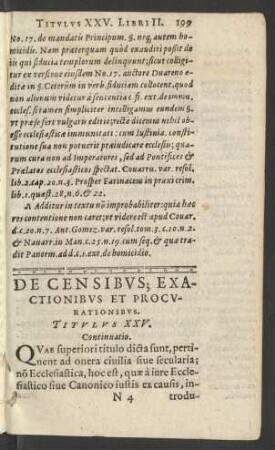 TITVLVS XXV. LIBRI II. 199
No.17. de mandatis Principum. §. neq, autem ho-
micidis. Nam præterquam quòd exaudiri possit de
iis qui fiducia templorum delinquunt; sicut colligi-
tur ex versione eiusdem No.17. auctore Duareno e-
dita in §. Ceterùm in verb. fiduciam custocent. quod
non alienum videtur à sententia c. fi. ext. de immu.
eccles. si tamen simpliciter intelligamus eundem §.
vt præ se fert vulgaris editio; rectè dicemus nihil ob-
esse ecclesiasticæ immunitati: cum Iustinia. consti-
tutione sua non potuerit præiudicare ecclesiæ; qua-
rum cura non ad Imperatores, sed ad Pontifices &
Prælatos ecclesiasticos spectat. Couarru. var. resol.
lib.2.cap.20.n.3. Prosper Farinaceus in praxi crim.
lib.1. quæst.28. n.6. & 22.
A Additur in textu nō improbabiliter: quia hæc
res contentione non caret; vt videre est apud Couar.
d.c.20.n.7. Ant. Gomez. var. resol. tom.3. c.10. n.2.
& Nauarr. in Man. c.25. n.19. cum seq. & qua tra-
dit Panorm. ad d.c.1. ext. de homicidio.
DE CENSIBVS; EXA-
CTIONIBVS ET PROCV-
RATIONIBVS.
TITVLVS XXV.
Continuatio.
QVAE superiori titulo dicta sunt, perti-
nent ad onera ciuilia siue secularia;
nō Ecclesiastica, hoc est, quæ à iure Eccle-
siastico siue Canonico iustis ex causis, in-
N 4 trodu-